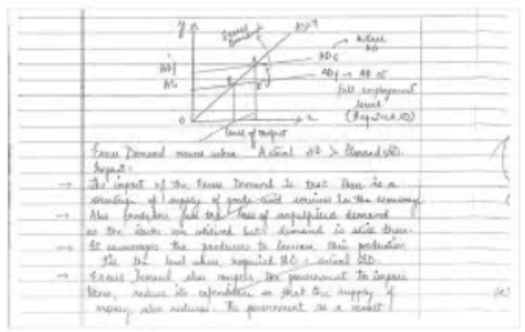 y
Excess
Demand
AS = Y
Actual
AD
ADE
AD
ADf → AD at
full employment
level
O
level of output
Excess Demand means when Actual AD > Planned
Impact:
→ The impact of the Excess Demand is that there is a
shortage of supply of goods and services in the economy.
→ Also producers feel the loss of unfulfilled demand
as the stocks are utilised but demand is still there.
→ It encourages the producers to increase their production
till the level where required AD = actual AD.
→ Excess Demand also compels the government to impose
taxes, reduce its expenditure so that the supply of
money also reduces. The government as a result